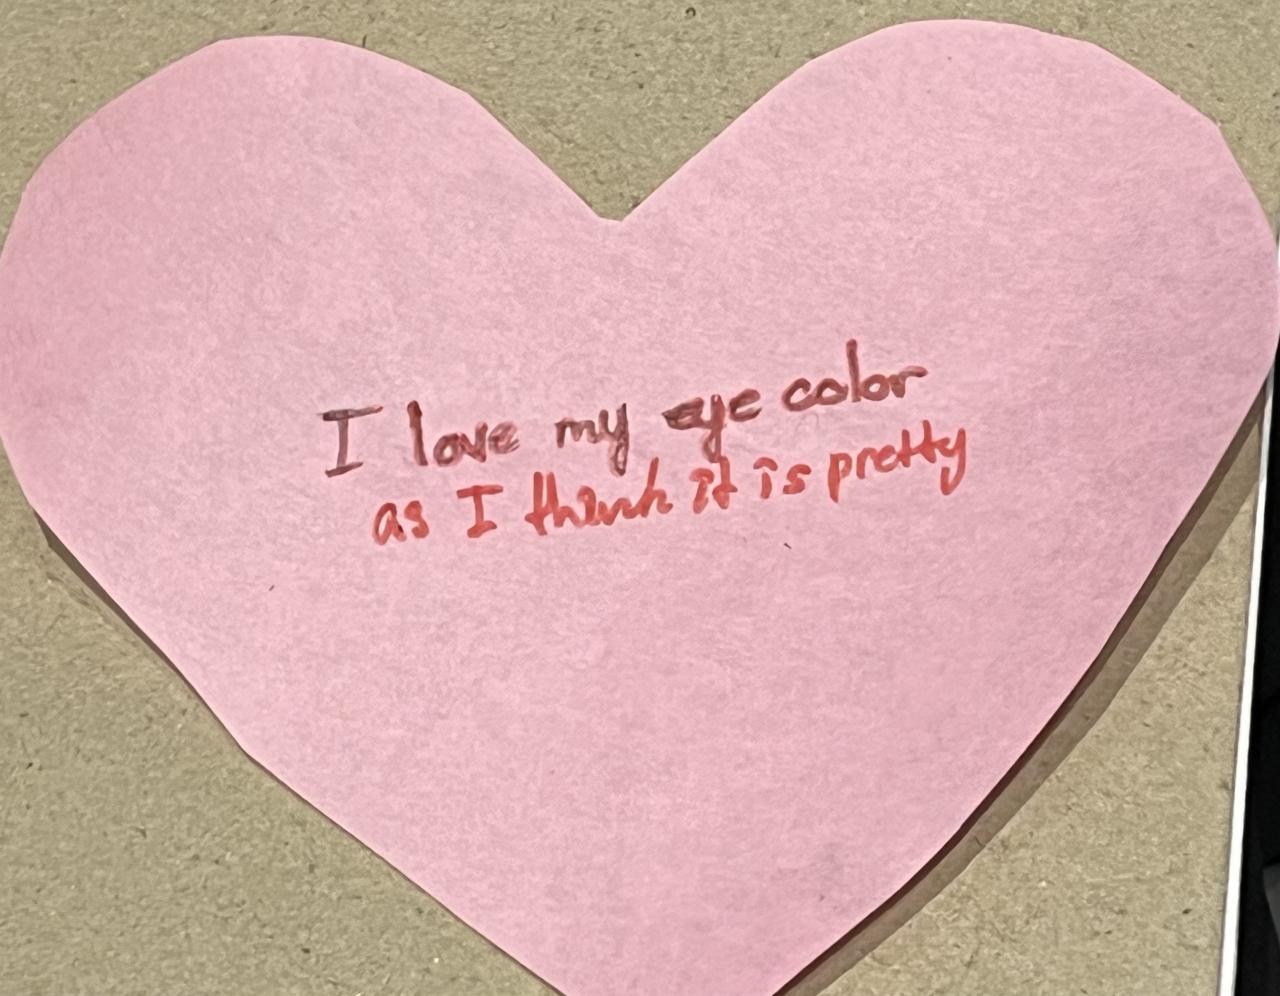 I love my eye color
as I think it is pretty